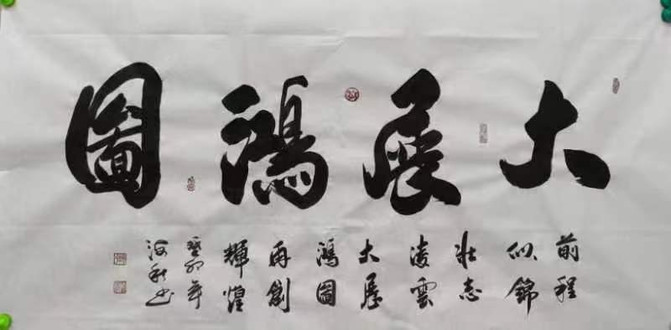 大展鴻圖
前程
似錦
壯志
凌雲
大展
鴻圖
再創
輝煌
癸卯年